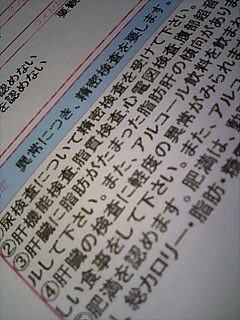 認めない
を認めない
異常につき、精密検査を要します。
尿検査について精密検査を受けて下さい。
②肝機能検査、脂質検査、心電図検査、腹部超音
③肝臓に脂肪がたまった脂肪肝の傾向があ
ルして下さい。また、アルコール飲料を飲ま
④肝臓の検査に軽度の異常がみられま
しい食事をして下さい。また、アルコ
肥満を認めます。肥満は、
総カロリー・脂肪・糖